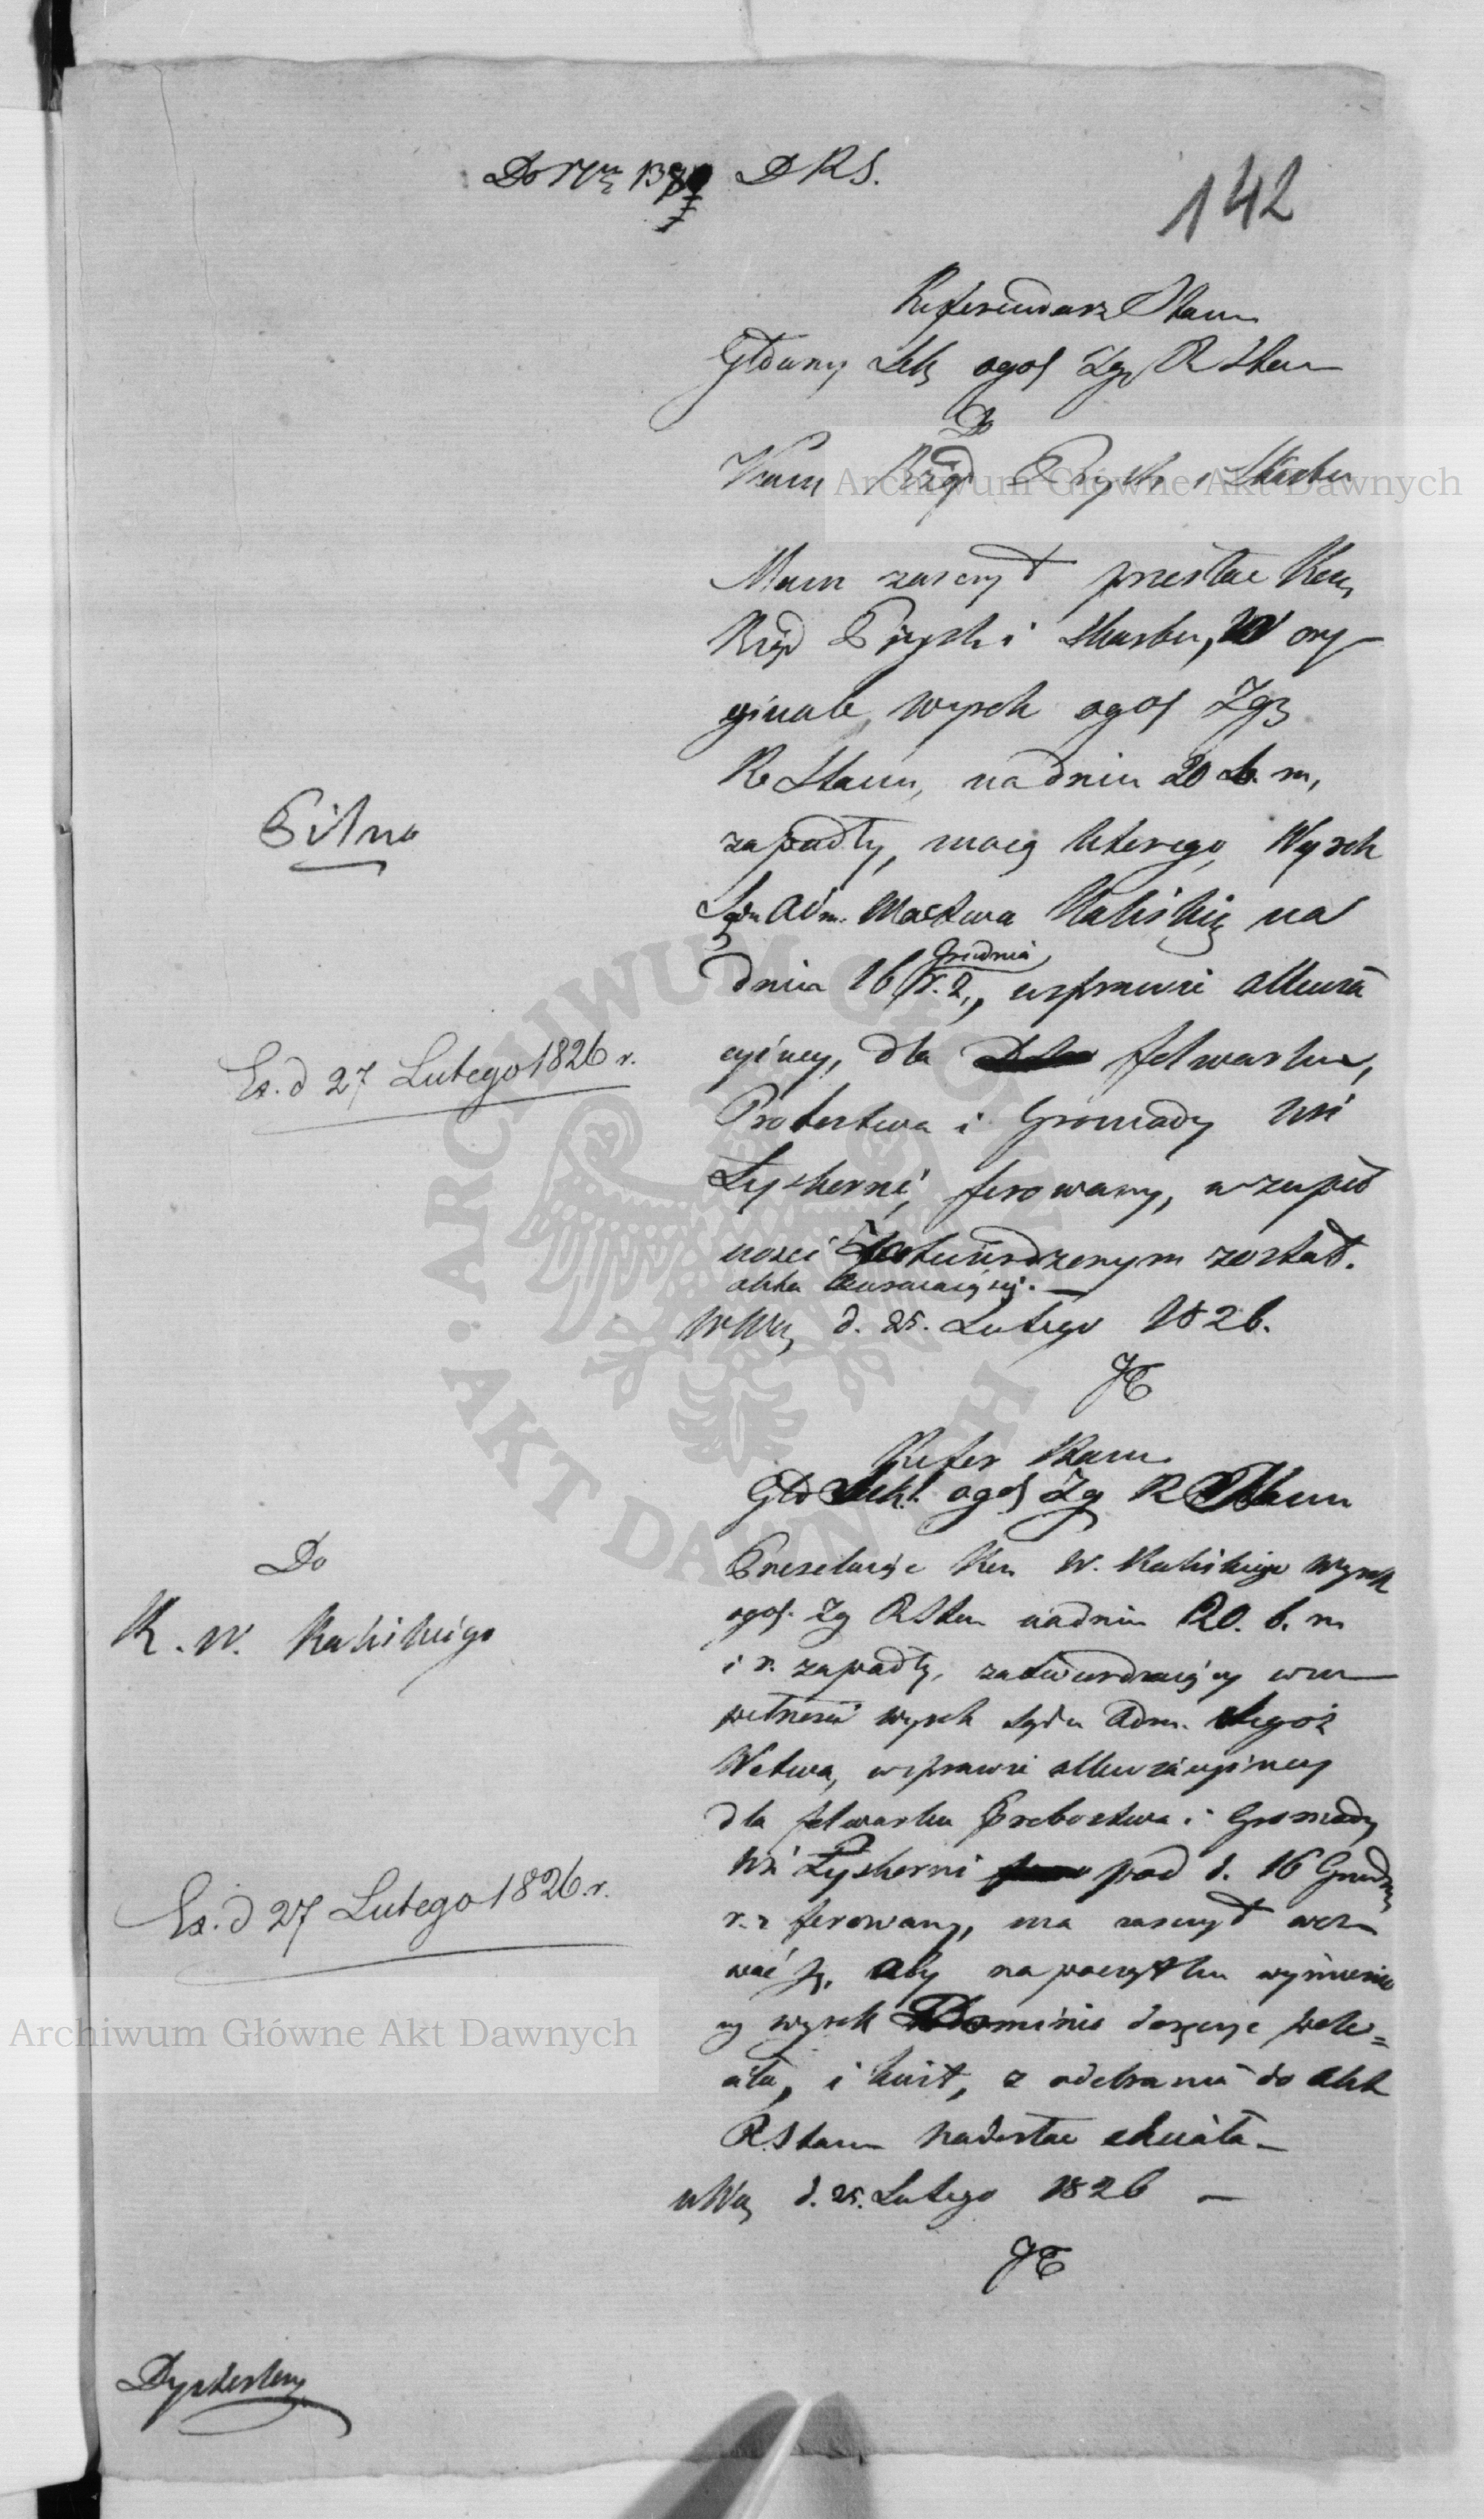 142
Referendarz Stanu
Główny Sek ogół Zgr R Stanu
Do
Kom Rząd Przych i Skarbu
Mam zaszczyt przesłać Kom
Rząd Przych i Skarbu, w ory-
ginale, wyrok ogół Zgr
R Stanu, na dniu 20 b. m,
zapadły, mocą którego, Wyrok
Sądu Adm. Wodztwa Kaliskieg na
dniu 16 Grudnia r. z., w sprawie allewia
cyiney, dla folwarku,
Probostwa i Gromady Wsi
Łyskorni, ferowany, w zupeł
ności potwierdzonym został.
W Wie d. 25. Lutego 1826.
Pilno
Ex. d 27 Lutego 1826 r.
Refer Stanu
Głó Sekr. ogół Zg R Stanu
Do
K. W. Kaliskiego
Przesełając Kom W. Kaliskiego wyrok
ogół. Zg R Stan na dniu 20. b. m
i r. zapadły, zatwierdzający w zu-
pełności wyrok Sądu Adm. tegoż
Wodztwa, w sprawie allewiacyiney
dla folwarku Probostwa i Gromady
Wsi Łyskorni pod d. 16 Grudnia
r. z ferowany, ma zaszczyt wez-
wać ją, aby na początku wymienio
ny wyrok doręczyć
i kwit, z odebrania do Akt
R. Stanu nadesłać chciała-
w Wie d. 25. Lutego 1826 -
Ex. d 27 Lutego 1826. r.
Archiwum Główne Akt Dawnych
Archiwum Główne Akt Dawnych
ARCHIWUM GŁÓWNE AKT DAWNYCH